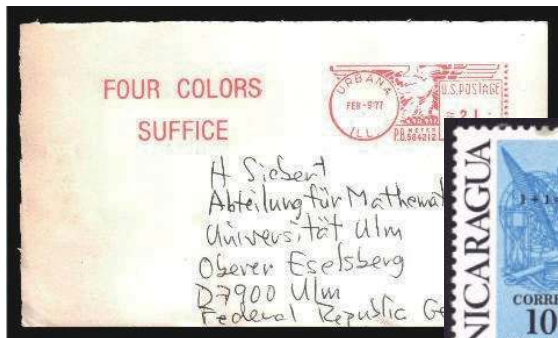 FOUR COLORS
SUFFICE
URBANA
FEB -9'77
ILL.
U.S. POSTAGE
21
PB METER
P.O. 564212
H Siebert
Abteilung für Mathemat
Universität Ulm
Oberer Eselsberg
D7900 Ulm
Federal Republic Ge
NICARAGUA
1+1
CORRE
10